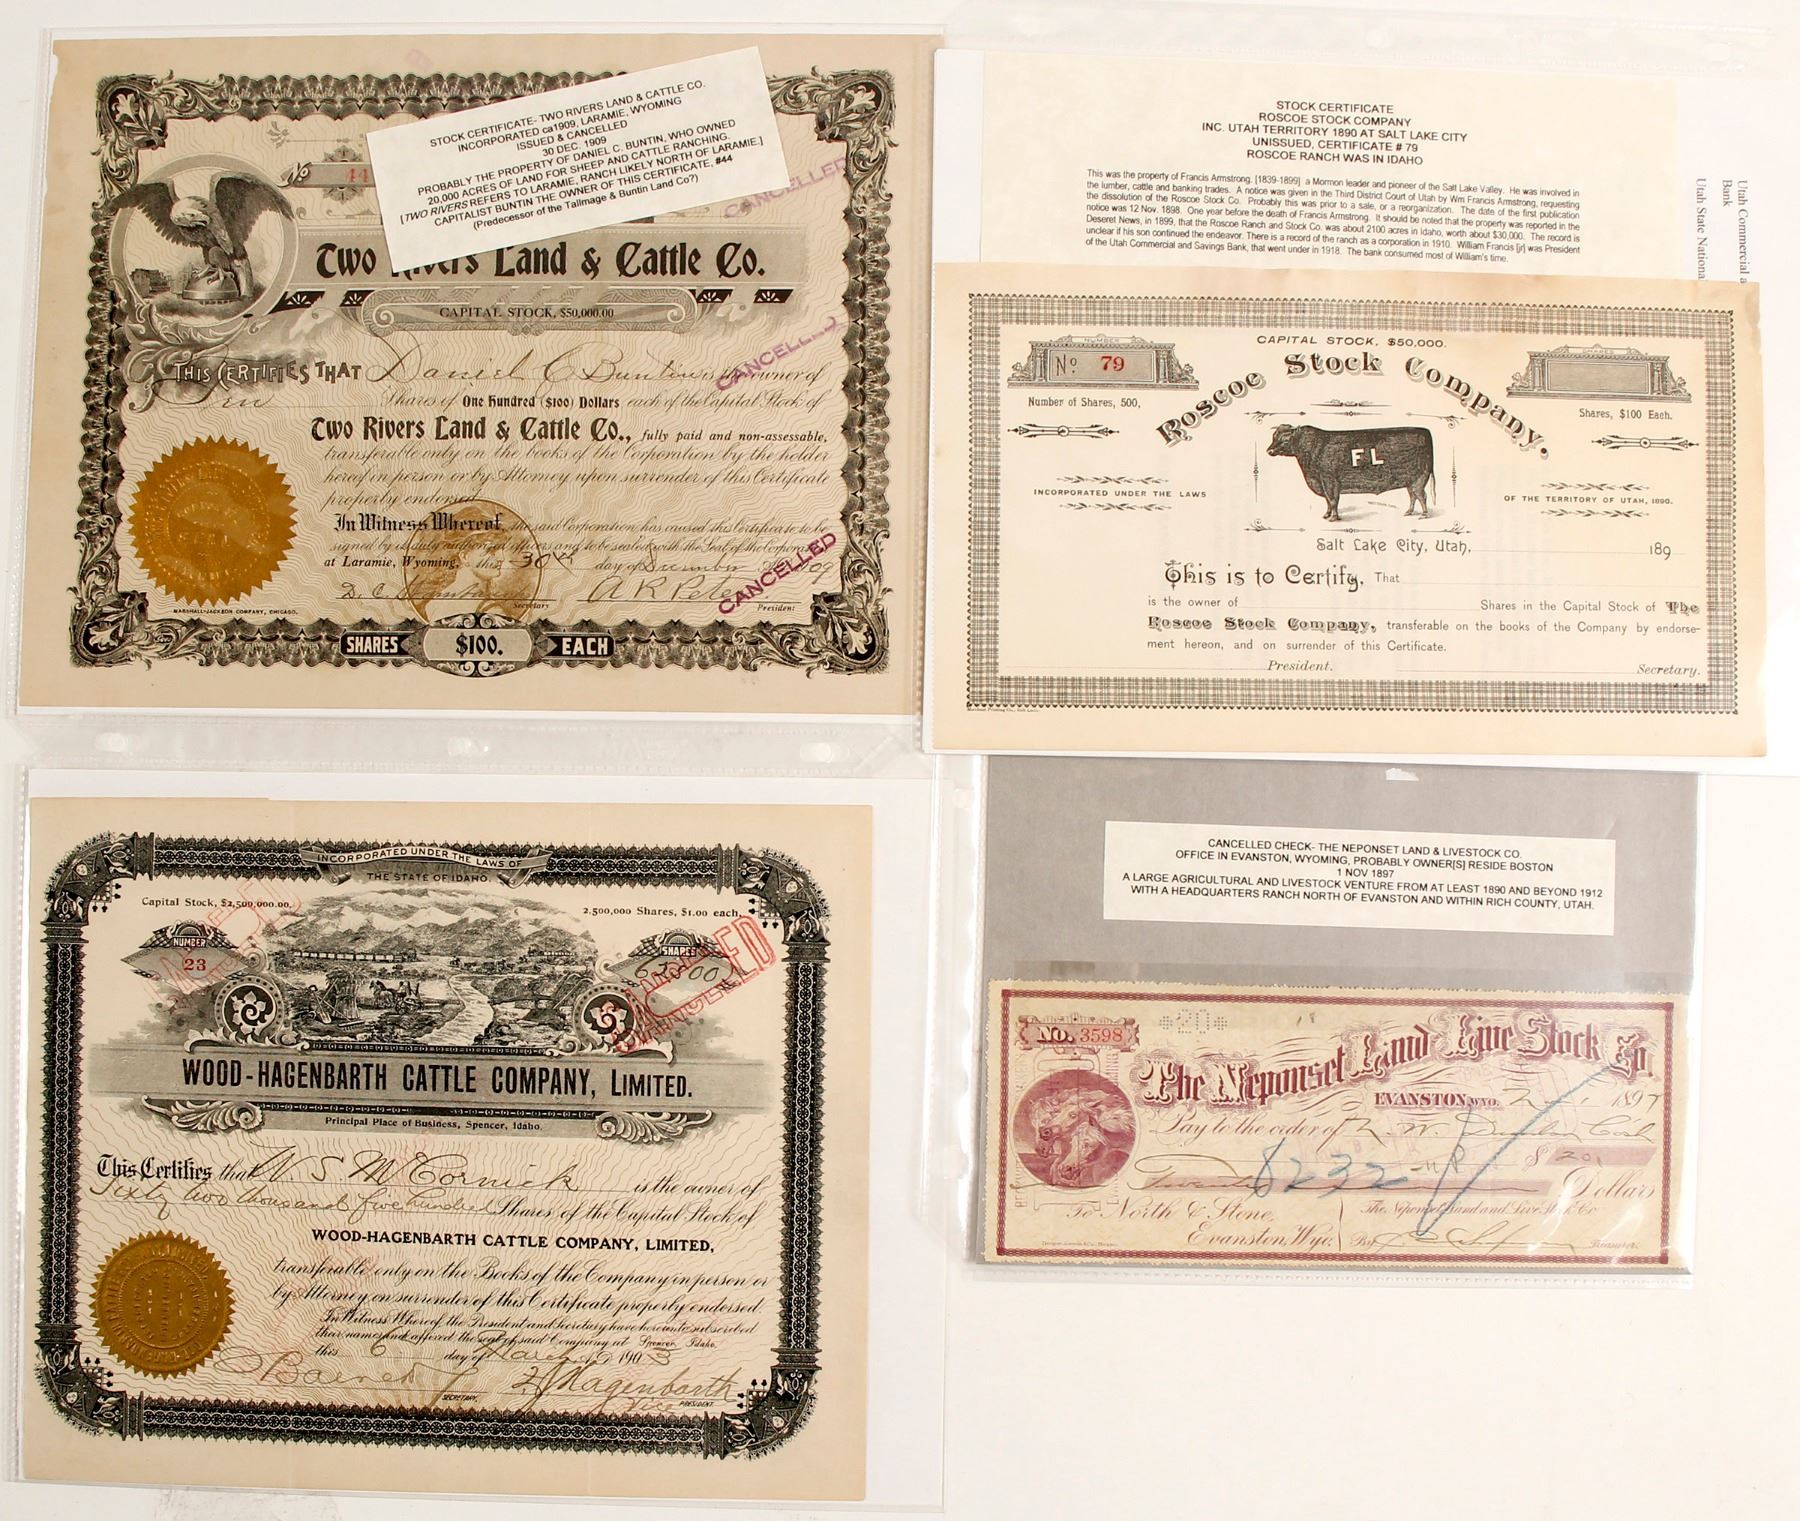 STOCK CERTIFICATE- TWO RIVERS LAND & CATTLE CO.
INCORPORATED ca1909, LARAMIE, WYOMING
ISSUED & CANCELLED
30 DEC. 1909
PROBABLY THE PROPERTY OF DANIEL C. BUNTIN, WHO OWNED
20,000 ACRES OF LAND FOR SHEEP AND CATTLE RANCHING.
[TWO RIVERS REFERS TO LARAMIE, RANCH LIKELY NORTH OF LARAMIE.]
CAPITALIST BUNTIN THE OWNER OF THIS CERTIFICATE, #44
(Predecessor of the Tallmage & Buntin Land Co?)
No 44
CANCELLED
Two Rivers Land & Cattle Co.
CAPITAL STOCK, $50,000.00
CANCELLED
THIS CERTIFIES THAT Daniel C Buntin is the owner of
Ten Shares of One Hundred ($100) Dollars each of the Capital Stock of
Two Rivers Land & Cattle Co., fully paid and non-assessable,
transferable only on the books of the Corporation by the holder
hereof in person or by Attorney upon surrender of this Certificate
properly endorsed
In Witness Whereof, the said Corporation has caused this Certificate to be
signed by its duly authorized officers and to be sealed with the Seal of the Corporation
at Laramie, Wyoming, this 30th day of December 09
CANCELLED
D. C. Secretary A R Peter President
MARSHALL-JACKSON COMPANY, CHICAGO.
SHARES $100. EACH
STOCK CERTIFICATE
ROSCOE STOCK COMPANY
INC. UTAH TERRITORY 1890 AT SALT LAKE CITY
UNISSUED, CERTIFICATE # 79
ROSCOE RANCH WAS IN IDAHO
This was the property of Francis Armstrong. [1839-1899] a Mormon leader and pioneer of the Salt Lake Valley. He was involved in
the lumber, cattle and banking trades. A notice was given in the Third District Court of Utah by Wm Francis Armstrong, requesting
the dissolution of the Roscoe Stock Co. Probably this was prior to a sale, or a reorganization. The date of the first publication
notice was 12 Nov. 1898. One year before the death of Francis Armstrong. It should be noted that the property was reported in the
Deseret News, in 1899, that the Roscoe Ranch and Stock Co. was about 2100 acres in Idaho, worth about $30,000. The record is
unclear if his son continued the endeavor. There is a record of the ranch as a corporation in 1910. William Francis [jr] was President
of the Utah Commercial and Savings Bank, that went under in 1918. The bank consumed most of William's time.
Utah Commercial
Bank
Utah State National
CAPITAL STOCK, $50,000.
NUMBER
No. 79
SHARES
Roscoe Stock Company.
Number of Shares, 500,
Shares, $100 Each.
FL
INCORPORATED UNDER THE LAWS
OF THE TERRITORY OF UTAH, 1890.
Salt Lake City, Utah, 189
This is to Certify, That
is the owner of Shares in the Capital Stock of The
Roscoe Stock Company, transferable on the books of the Company by endorse-
ment hereon, and on surrender of this Certificate.
President. Secretary.
INCORPORATED UNDER THE LAWS OF
THE STATE OF IDAHO
Capital Stock, $2,500,000.00.
2,500,000 Shares, $1.00 each,
NUMBER
23
SHARES
62500
CANCELLED
CANCELLED
WOOD-HAGENBARTH CATTLE COMPANY, LIMITED.
Principal Place of Business, Spencer, Idaho.
This Certifies that W. S. McCornick is the owner of
Sixty two thousand five hundred Shares of the Capital Stock of
WOOD-HAGENBARTH CATTLE COMPANY, LIMITED,
transferable only on the Books of the Company in person or
by Attorney on surrender of this Certificate properly endorsed.
In Witness Whereof the President and Secretary have hereunto subscribed
their names and affixed the seal of said Company at Spencer, Idaho,
this 6 day of March 1903
SECRETARY. Hagenbarth
Vice PRESIDENT.
CANCELLED CHECK- THE NEPONSET LAND & LIVESTOCK CO.
OFFICE IN EVANSTON, WYOMING, PROBABLY OWNER[S] RESIDE BOSTON
1 NOV 1897
A LARGE AGRICULTURAL AND LIVESTOCK VENTURE FROM AT LEAST 1890 AND BEYOND 1912
WITH A HEADQUARTERS RANCH NORTH OF EVANSTON AND WITHIN RICH COUNTY, UTAH.
No. 3598
*20*
The Neponset Land and Live Stock Co.
EVANSTON, WYO. Nov 1 1897
Pay to the order of Cash
$ 20
8232
Twenty Dollars
To North & Stone, The Neponset Land and Live Stock Co
Evanston, Wyo. By Treasurer